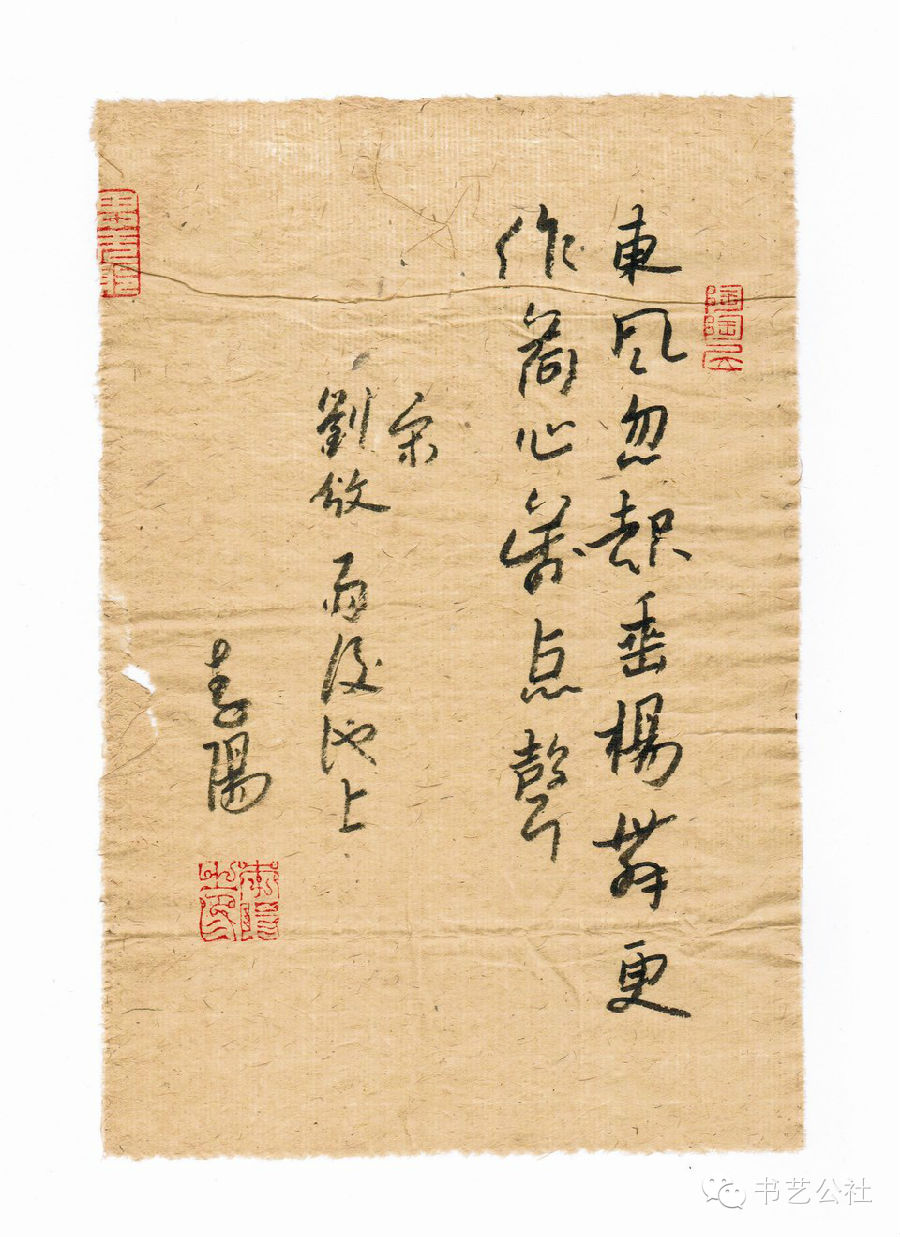 東風忽起垂楊舞更
作荷心萬点聲
宋
劉攽 雨後池上
陽
书艺公社